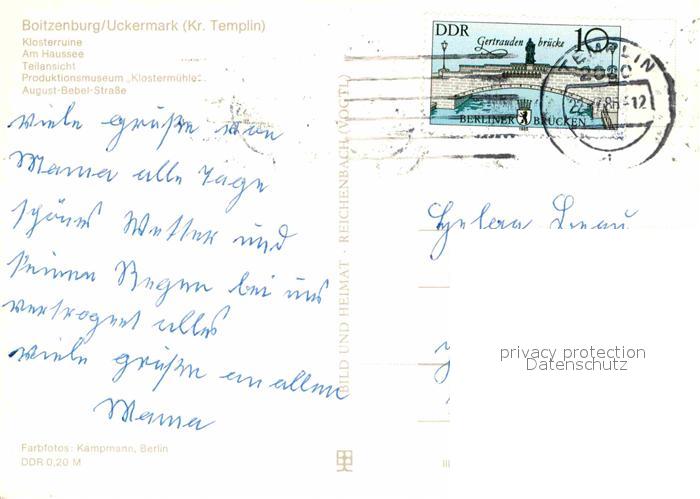 Boitzenburg/Uckermark (Kr. Templin)
Klosterruine
Am Haussee
Teilansicht
Produktionsmuseum „Klostermühle“
August-Bebel-Straße
viele grüße von
Mama alle Tage
schönes Wetter und
keinen Regen bei uns
alles
viele grüße an allen
Mama
Farbfotos: Kampmann, Berlin
DDR 0,20 M
BILD UND HEIMAT · REICHENBACH (VOGTL)
DDR
10
Gertraudenbrücke
BERLINER BRÜCKEN
TEMPLIN
-12
privacy protection
Datenschutz
III